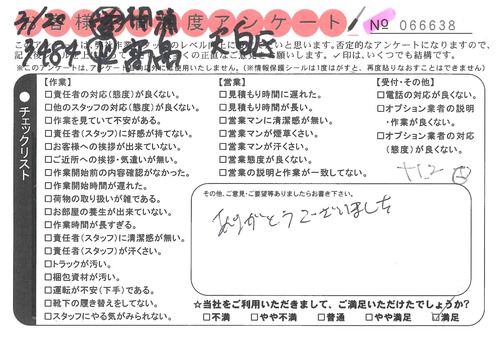 3/20
お客様満足度アンケート
No 066638
天白区
※このアンケートは、
【作業】
□責任者の対応(態度)が良くない。
□他のスタッフの対応(態度)が良くない。
□作業を見ていて不安がある。
□責任者(スタッフ)に好感が持てない。
□お客様への挨拶が出来ていない。
□ご近所への挨拶・気遣いが無い。
□作業開始前の内容確認がなかった。
□作業開始時間が遅れた。
□荷物の取り扱いが雑である。
□お部屋の養生が出来ていない。
□作業時間が長すぎる。
□責任者(スタッフ)に清潔感が無い。
□責任者(スタッフ)が汗くさい。
□トラックが汚い。
□梱包資材が汚い。
□運転が不安(下手)である。
□靴下の履き替えをしてない。
□スタッフにやる気がみられない。
【営業】
□見積もり時間に遅れた。
□見積もり時間が長い。
□営業マンに清潔感が無い。
□営業マンが煙草くさい。
□営業マンが汗くさい。
□営業態度が良くない。
□営業の説明と作業が一致してない。
【受付・その他】
□電話の対応が良くない。
□オプション業者の説明
・作業が良くない。
□オプション業者の対応
(態度)が良くない。
チェックリスト
その他、ご意見・ご要望等ありましたらお書き下さい。
ありがとうございました
☆当社をご利用いただきまして、ご満足いただけたでしょうか?
□不満 □やや不満 □普通 □やや満足 □満足